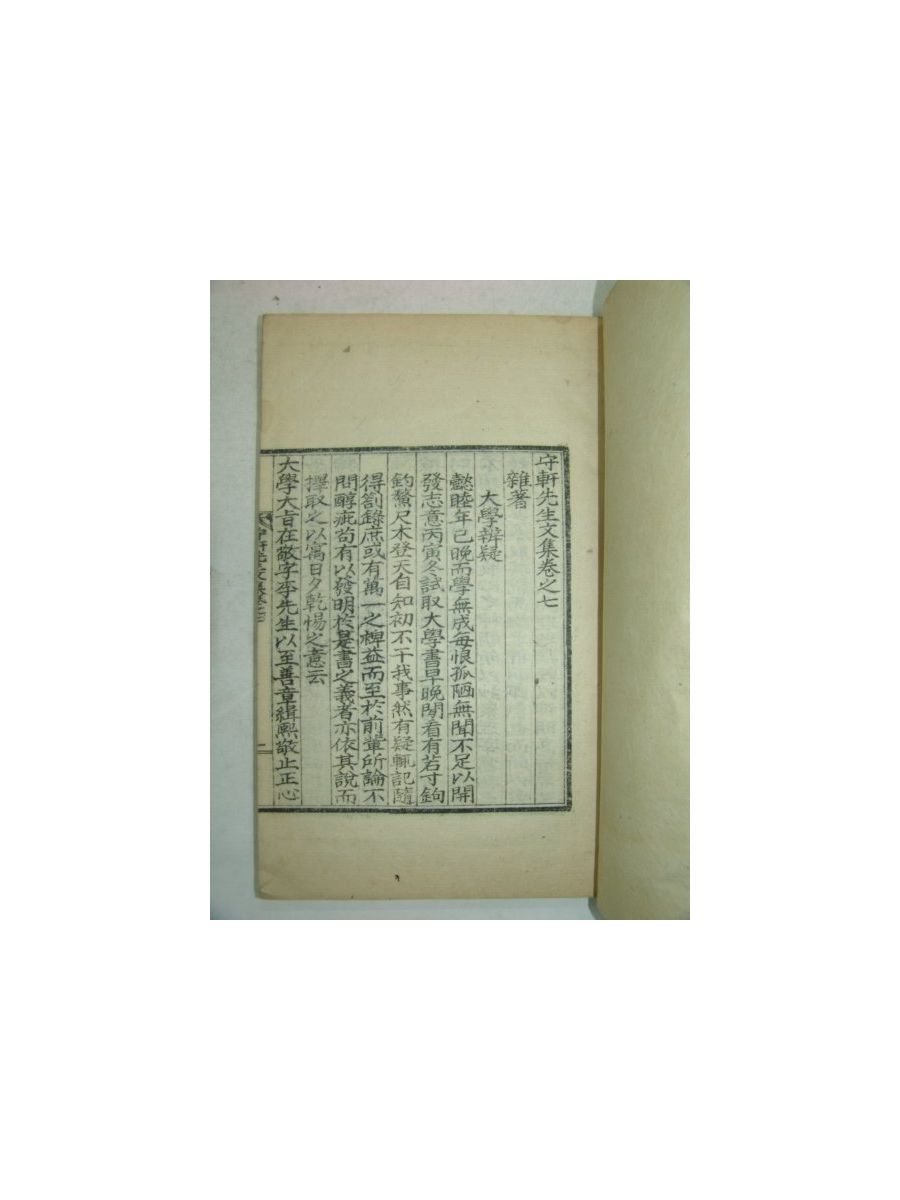 守軒先生文集卷之七
雜著
大學辨疑
懿睦年已晩而學無成每恨孤陋無聞不足以開
發志意丙寅冬試取大學書早晩閒看有若寸鉤
釣鰲尺木登天自知初不干我事然有疑輒記隨
得劄錄庶或有萬一之裨益而至於前輩所論不
問醇疵苟有以發明於是書之義者亦依其說而
擇取之以寓日夕乾惕之意云
大學大旨在敬字李先生以至善章緝熙敬止正心